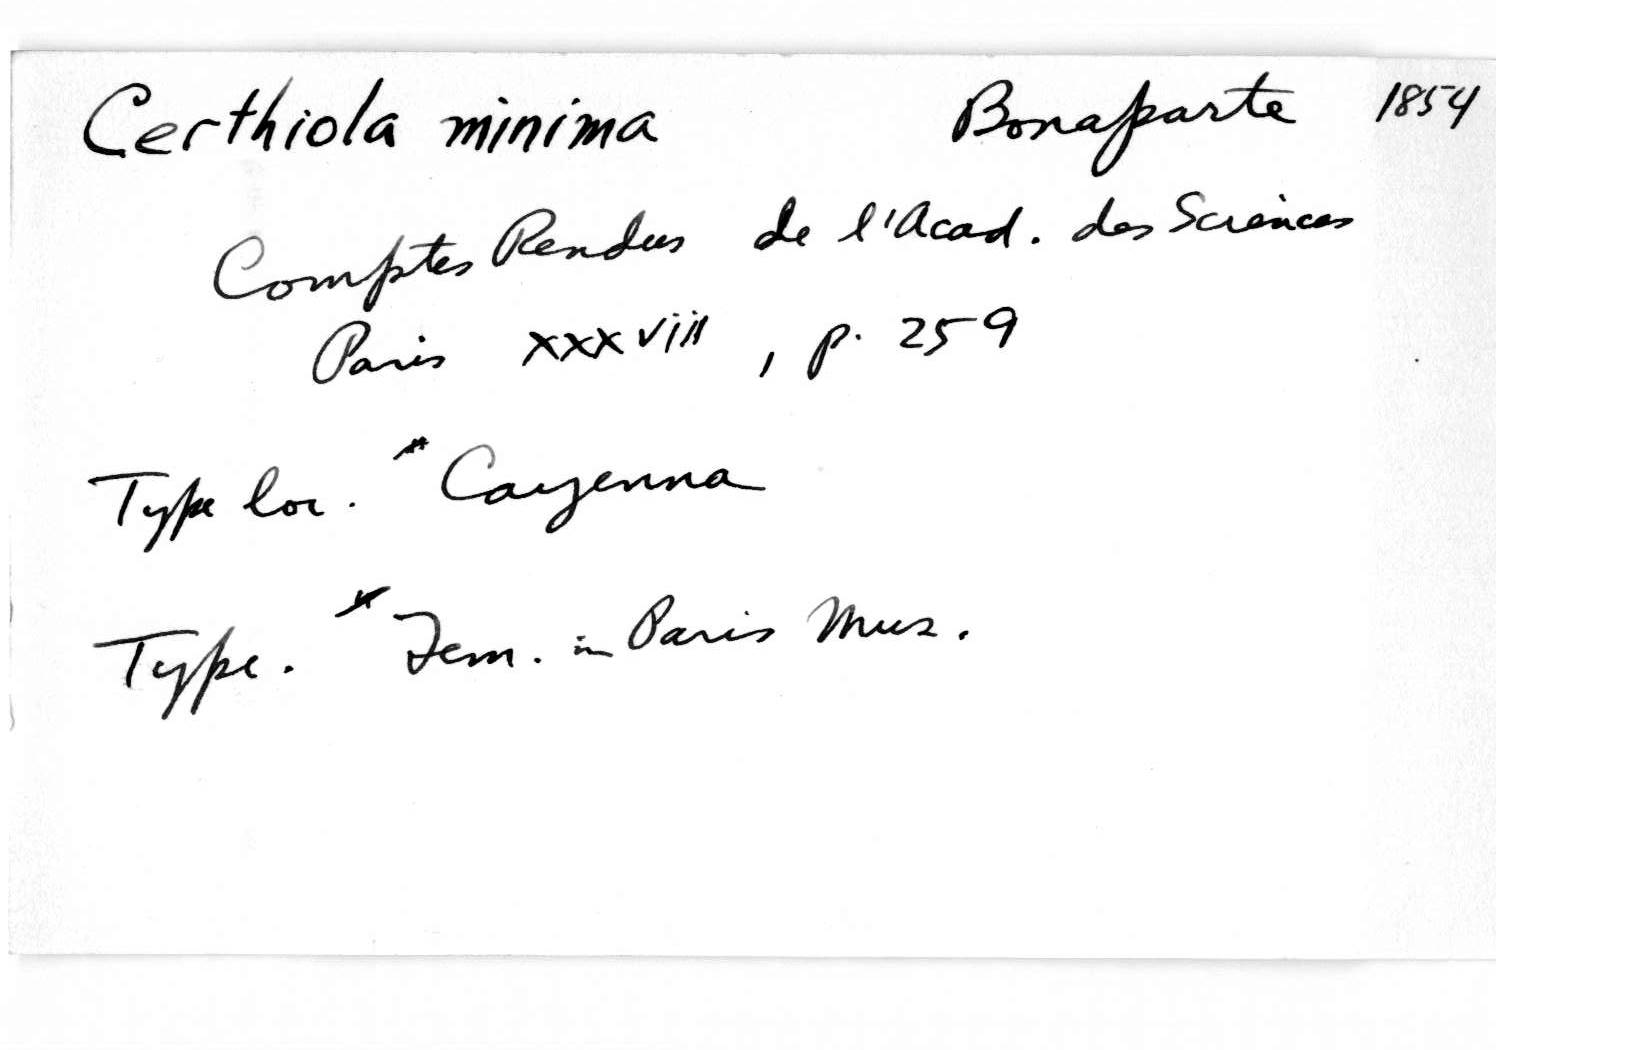 Certhiola minima Bonaparte 1854
Comptes Rendus de l'Acad. des Sciences
Paris xxxviii, p. 259
Type loc. * Cayenna
Type. * Fem. in Paris Mus.